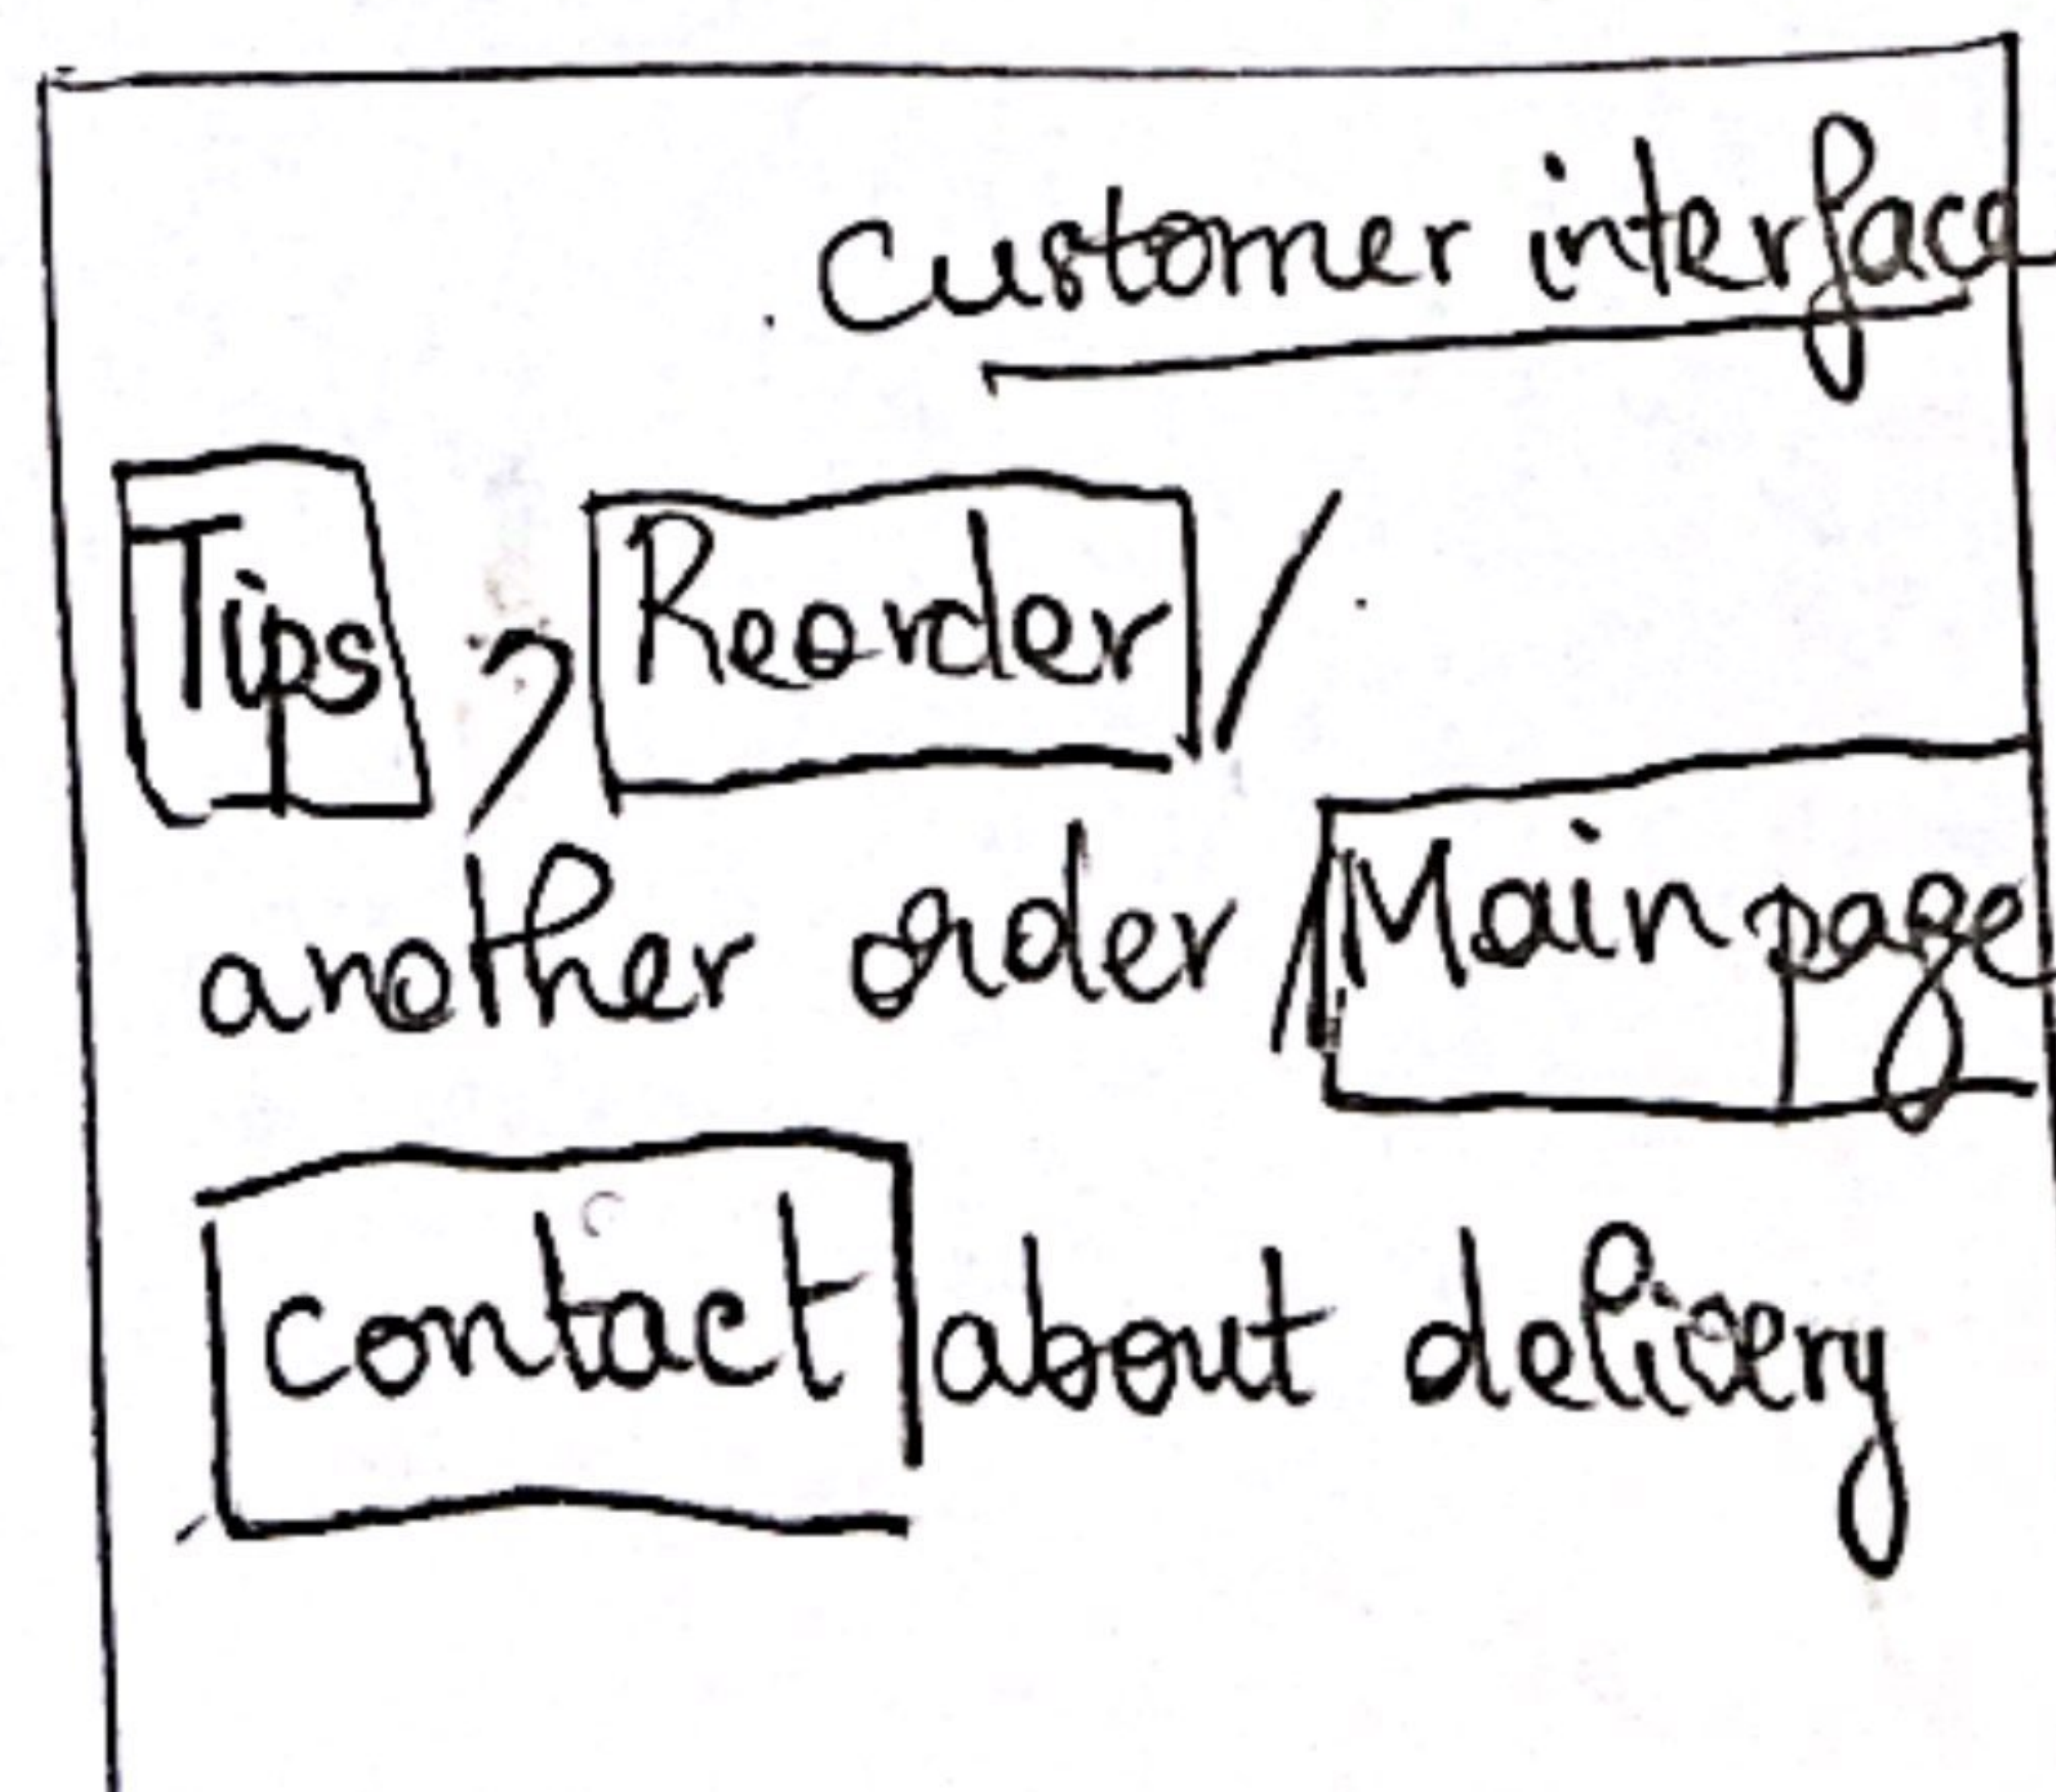 Customer interface
Tips, Reorder /
another order / Main page
contact about delivery